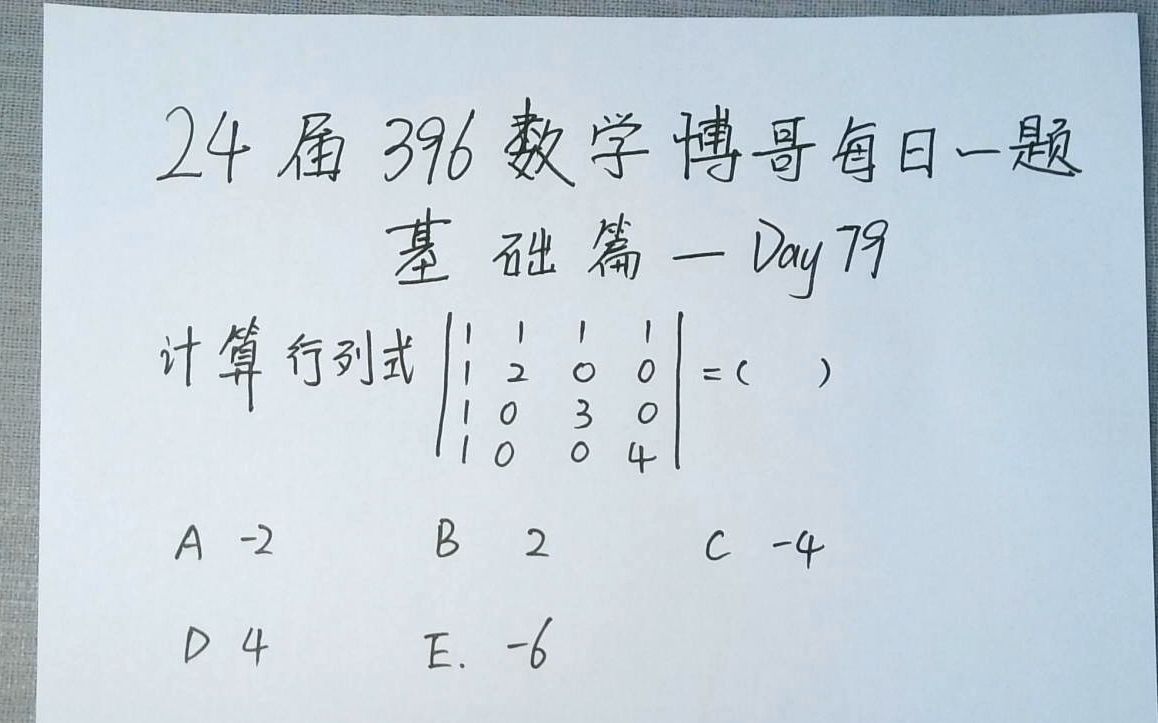 24届396数学博哥每日一题
基础篇—Day79
计算行列式 | 1 1 1 1 | =( )
1 2 0 0
1 0 3 0
1 0 0 4
A -2 B 2 C -4
D 4 E. -6